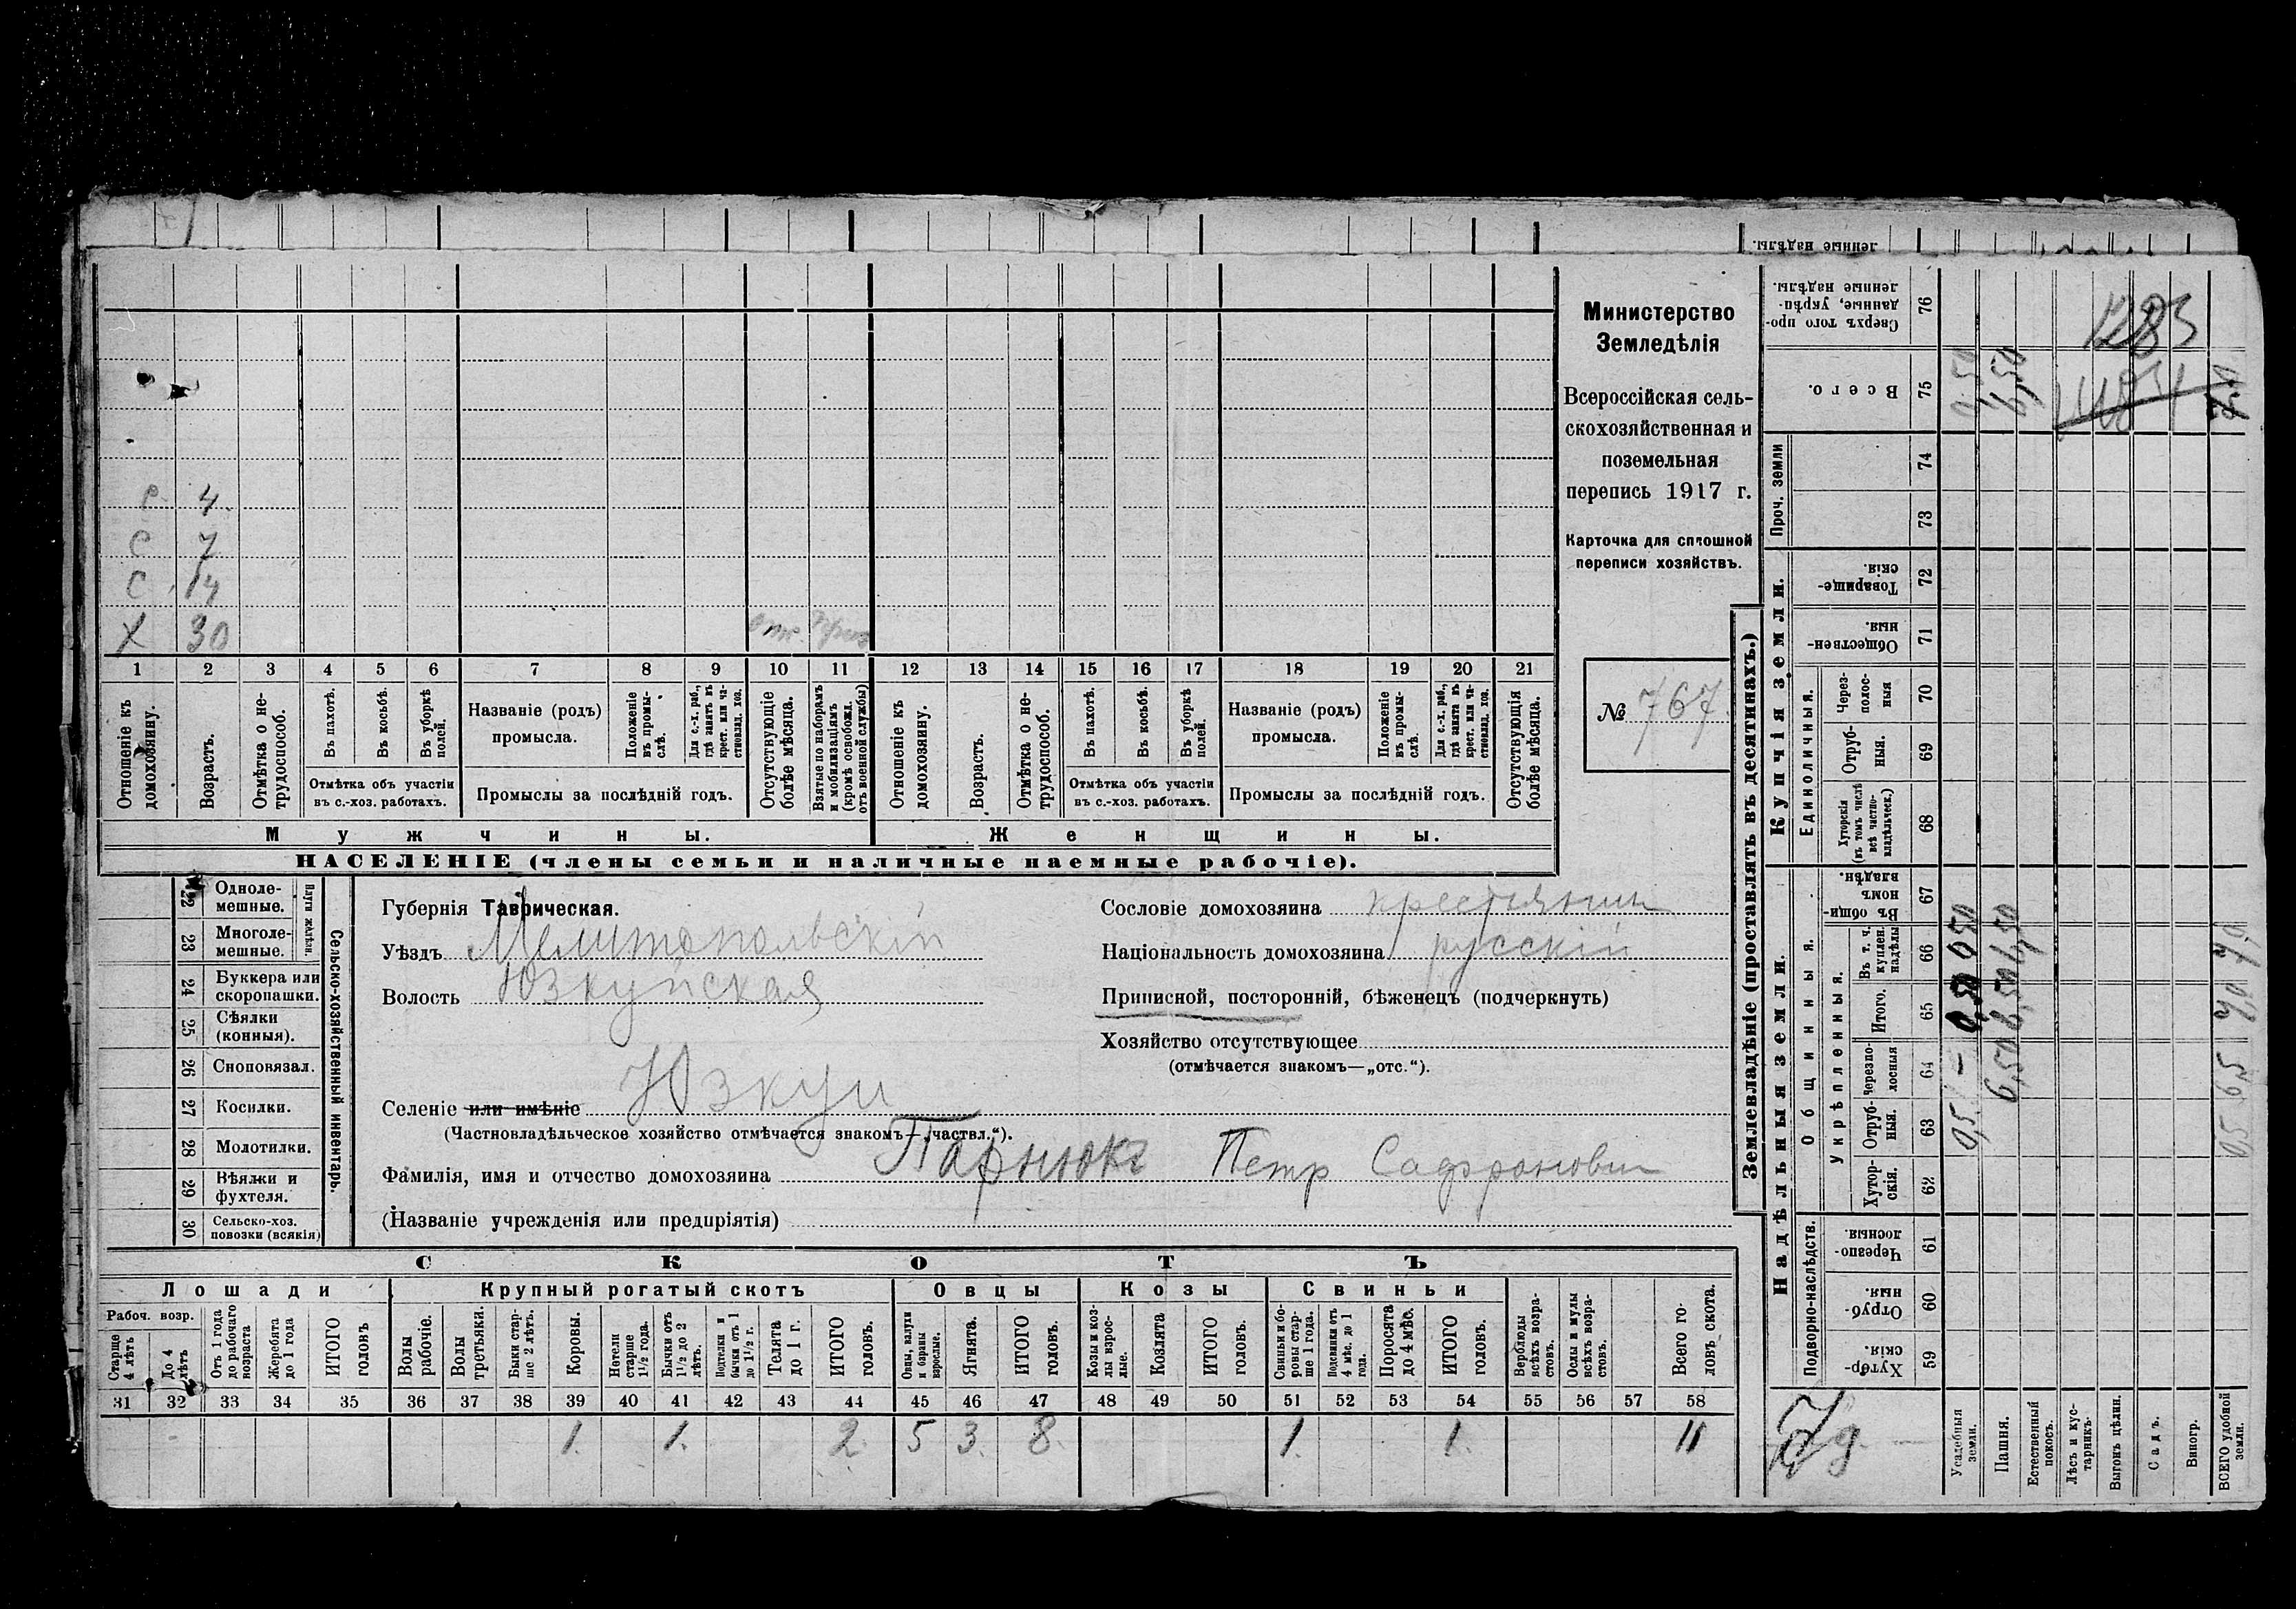 ленные надѣлы.
С 4
С 7
С 14
Х 30
1 2 3 4 5 6 7 8 9 10 11 12 13 14 15 16 17 18 19 20 21
Отношеніе къ домохозяину.
Возрастъ.
Отмѣтка о нетрудоспособ.
Въ пахотѣ.
Въ косьбѣ.
Въ уборкѣ полей.
Отмѣтка объ участіи въ с.-хоз. работахъ.
Названіе (родъ) промысла.
Положеніе въ промыслѣ.
Для с.-х. раб., гдѣ занятъ въ крест. или частновлад. хоз.
Промыслы за послѣдній годъ.
Отсутствующіе болѣе мѣсяца.
Взятые по наборамъ и мобилизаціямъ (кромѣ освобожд. отъ военной службы)
Отношеніе къ домохозяину.
Возрастъ.
Отмѣтка о нетрудоспособ.
Въ пахотѣ.
Въ косьбѣ.
Въ уборкѣ полей.
Отмѣтка объ участіи въ с.-хоз. работахъ.
Названіе (родъ) промысла.
Положеніе въ промыслѣ.
Для с.-х. раб., гдѣ занята въ крест. или частновлад. хоз.
Промыслы за послѣдній годъ.
Отсутствующія болѣе мѣсяца.
Мужчины.
Женщины.
НАСЕЛЕНІЕ (члены семьи и наличные наемные рабочіе).
Министерство
Земледѣлія
Всероссійская сель-
скохозяйственная и
поземельная
перепись 1917 г.
Карточка для сплошной
переписи хозяйствъ.
№ 767
22 Одноле-
мешные.
23 Многоле-
мешные.
Плуги желѣзн.
24 Буккера или
скоропашки.
25 Сѣялки
(конныя).
26 Сноповязал.
27 Косилки.
28 Молотилки.
29 Вѣялки и
фухтеля.
30 Сельско-хоз.
повозки (всякія)
Сельско-хозяйственный инвентарь.
Губернія Таврическая.
Уѣздъ Мелитопольскій
Волость Юзкуйская
Селеніе или имѣніе Юзкуи
(Частновладѣльческое хозяйство отмѣчается знакомъ—„частвл.“).
Фамилія, имя и отчество домохозяина Парнюкъ Петр Софронович
(Названіе учрежденія или предпріятія)
Сословіе домохозяина крестьянин
Національность домохозяина русскій
Приписной, посторонній, бѣженецъ (подчеркнуть)
Хозяйство отсутствующее
(отмѣчается знакомъ—„отс.“).
СКОТЪ
Лошади
Крупный рогатый скотъ
Овцы
Козы
Свиньи
Рабоч. возр.
Старше 4 лѣтъ
До 4 лѣтъ
Отъ 1 года до рабочаго возраста
Жеребята до 1 года
ИТОГО головъ
Волы рабочіе.
Волы третьяки.
Быки старше 2 лѣтъ.
Коровы.
Нетели старше 1½ года.
Бычки отъ 1½ до 2 лѣтъ.
Подтелки и бычки отъ 1 до 1½ г.
Телята до 1 г.
ИТОГО головъ.
Овцы, валухи и бараны взрослые.
Ягнята.
ИТОГО головъ.
Козы и козлы взрослые.
Козлята
ИТОГО головъ.
Свиньи и боровы старше 1 года.
Подсвинки отъ 4 мѣс. до 1 года.
Поросята до 4 мѣс.
ИТОГО головъ.
Верблюды всѣхъ возрастовъ.
Ослы и мулы всѣхъ возрастовъ.
Всего головъ скота.
31 32 33 34 35 36 37 38 39 40 41 42 43 44 45 46 47 48 49 50 51 52 53 54 55 56 57 58
1. 1. 2. 5 3. 8. 1. 1. 11
Землевладѣніе (проставлять въ десятинахъ.)
Надѣльныя земли.
Купчія земли.
Подворно-наслѣдств.
Общинныя.
Укрѣпленныя.
Единоличныя.
Проч. земли
Сверхъ того проданные, укрѣпленные надѣлы. 76
Всего. 75
74
73
Товарищескія. 72
Общественныя. 71
Черезполосныя 70
Отрубныя. 69
Хуторскія (въ томъ числѣ всѣ частновладѣльческ.) 68
Въ общиномъ владѣн. 67
Въ т. ч. куплен. надѣлы 66
Итого. 65
Черезполосныя 64
Отрубныя. 63
Хуторскія. 62
Черезполосныя. 61
Отрубныя. 60
Хуторскія. 59
Усадебныя земли. 0,5 0,50 0,50
Пашня. 6,50 6,50 6,50 6,50
Естественный покосъ.
Лѣсъ и кустарникъ.
Выгонъ цѣлин.
Садъ.
Виногр.
ВСЕГО удобной земли. 05 6,5 7,0 7,0 7,0
1283
7 д